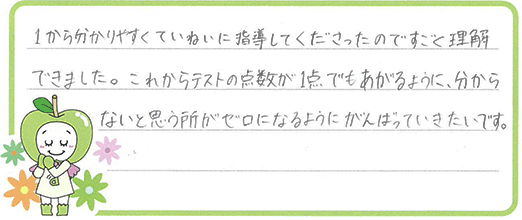 1から分かりやすくていねいに指導してくださったのですごく理解
できました。これからテストの点数が1点でもあがるように、分から
ないと思う所がゼロになるようにがんばっていきたいです。